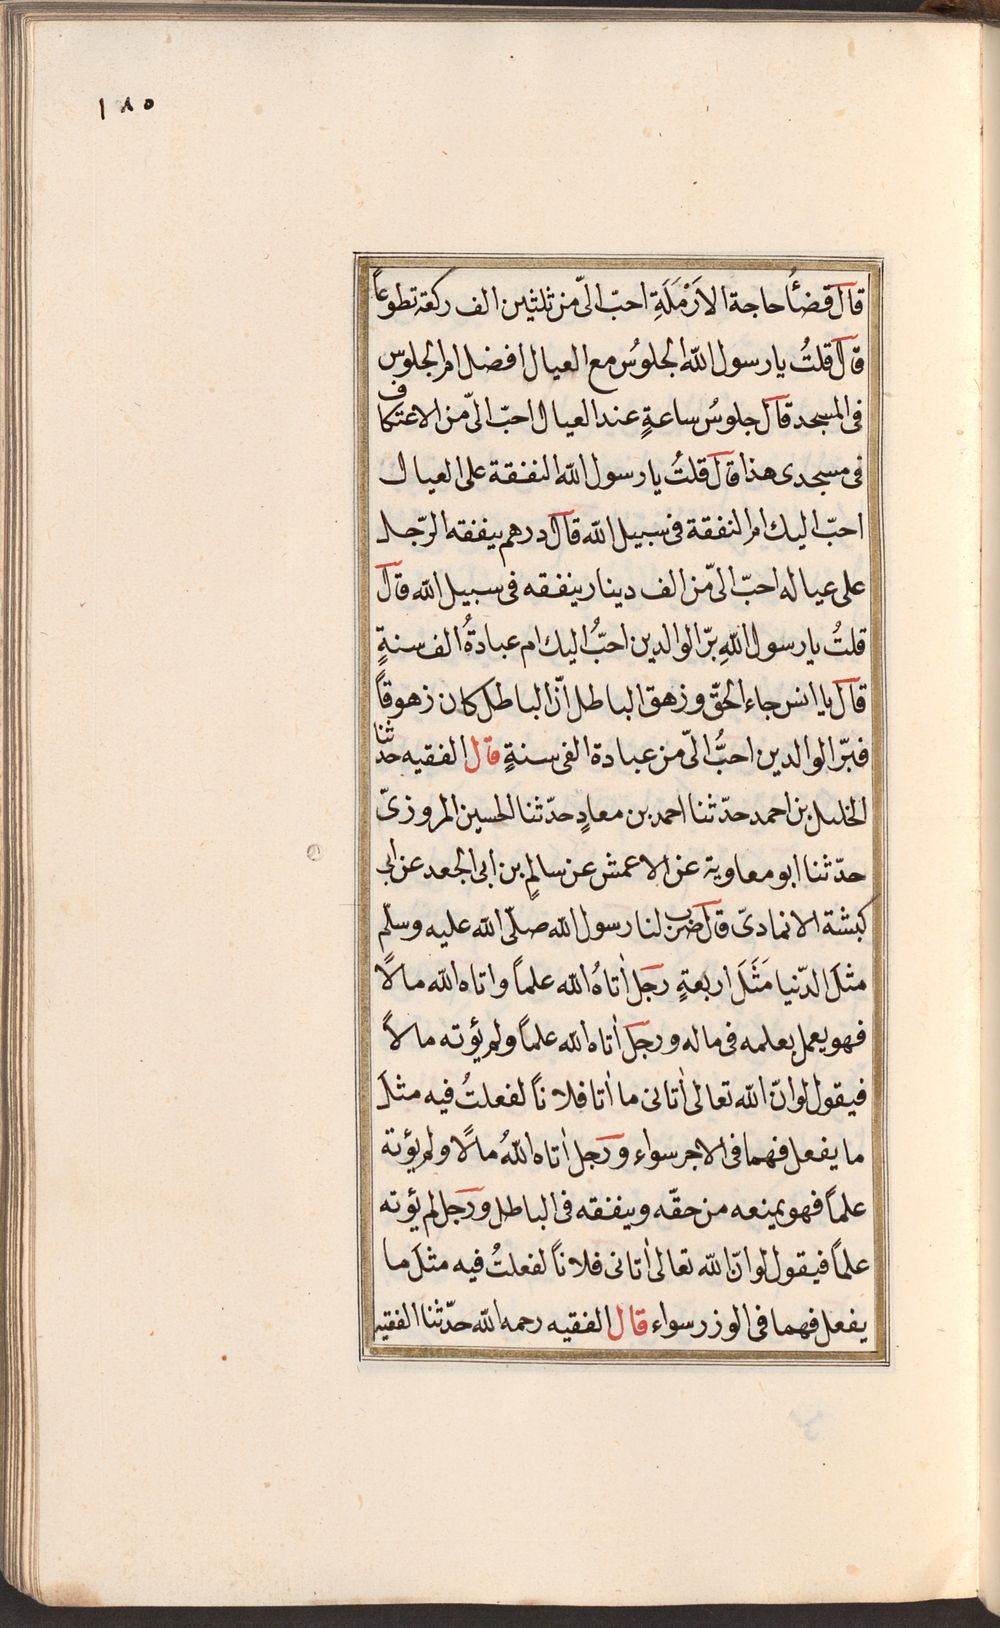 ١٨٥
قال قضأُ حاجة الاَرْمَلَةِ احبّ الىّ من ثلثين الف ركعة تطوعاً
قال قلتُ يا رسول الله الجلوسُ مع العيال افضل ام الجلوس
فى المسجد قال جلوسُ ساعةٍ عند العيال احبّ الىّ من الاعتكاف
فى مسجدى هذا قال قلتُ يا رسول الله النفقة على العيال
احبّ اليك ام النفقة فى سبيل الله قال درهم ينفقه الرّجل
على عياله احبّ الىّ من الف دينار ينفقه فى سبيل الله قال
قلتُ يا رسول اللهِ برّ الوالدين احبُّ اليك ام عبادةُ الف سنةٍ
قال يا انس جاء الحقّ وزهق الباطل انّ الباطل كان زهوقاً
فبرّ الوالدين احبُّ الىّ من عبادة الفى سنةٍ قال الفقيه حدثنا
الخليل بن احمد حدّثنا احمد بن معادٍ حدّثنا الحسين المروزىّ
حدّثنا ابو معاوية عن الاعمش عن سالمٍ بن ابى الجعد عن ابى
كبشة الانمادىّ قال ضرب لنا رسول الله صلّى الله عليه وسلّم
مثلَ الدّنيا مَثَلَ اربعةٍ رجل اٰتاهُ الله علماً واتاه الله مالًا
فهو يعمل بعلمه فى ماله ورجل اٰتاه الله علماً ولم يؤته مالاً
فيقول لو انّ الله تعالى اٰتانى ما اٰتا فلاناً لفعلتُ فيه مثل
ما يفعل فهما فى الاجر سواء ورجل اٰتاه اللهُ مالًا ولم يؤته
علماً فهو يمنعه من حقّه وينفقه فى الباطل ورجل لم يؤته
علماً فيقول لو انّ الله تعالى اٰتانى فلاناً لفعلتُ فيه مثلَ ما
يفعل فهما فى الوزر سواء قال الفقيه رحمه الله حدّثنا الفقيه